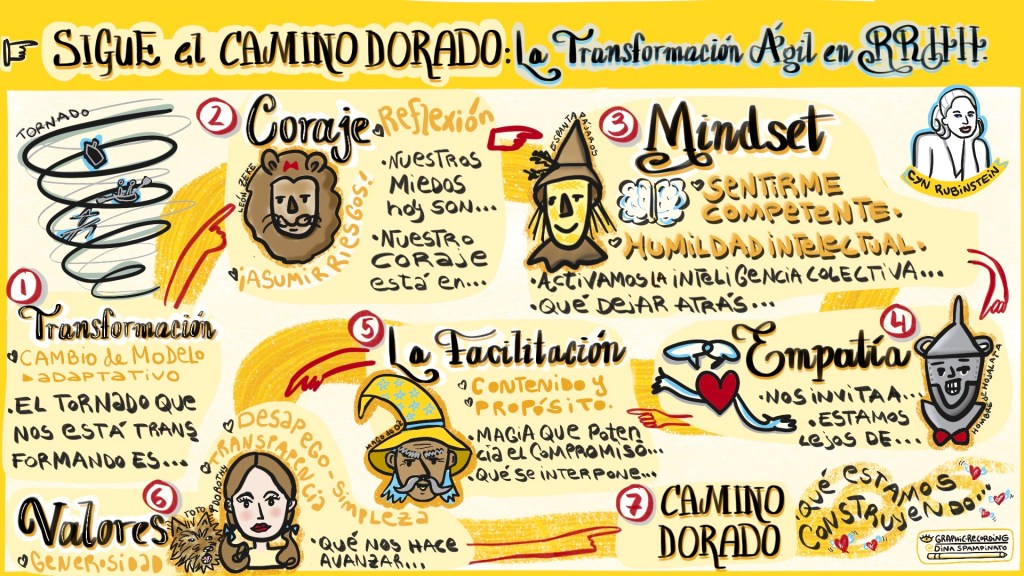 SIGUE el CAMINO DORADO: La Transformación Ágil en RRHH.
TORNADO
1
Transformación
CAMBIO de MODELO
ADAPTATIVO
• EL TORNADO QUE
NOS ESTÁ TRANS
FORMANDO ES...
2
Coraje
Reflexión
LEÓN
¡ASUMIR RIESGOS!
• NUESTROS
MIEDOS
hoy SON...
• NUESTRO
CORAJE
ESTÁ EN...
ESPANTAPÁJAROS
3
Mindset
SENTIRME
COMPETENTE.
HUMILDAD INTELECTUAL.
• ACTIVAMOS LA INTELIGENCIA COLECTIVA...
• QUÉ DEJAR ATRÁS...
CYN RUBINSTEIN
4
Empatía
• NOS INVITA A...
• ESTAMOS
LEJOS DE...
HOMBRE DE HOJALATA
5
La Facilitación
CONTENIDO Y
PROPÓSITO.
MAGO DE OZ
• MAGIA QUE POTEN
CIA EL COMPROMISO...
QUÉ SE INTERPONE...
6
Valores
GENEROSIDAD
TOTO
DOROTHY
DESAPEGO - SIMPLEZA
TRANSPARENCIA
• QUÉ NOS HACE
AVANZAR...
7
CAMINO
DORADO
QUÉ ESTAMOS
CONSTRUYENDO...
GRAPHIC RECORDING
DINA SPAMPINATO